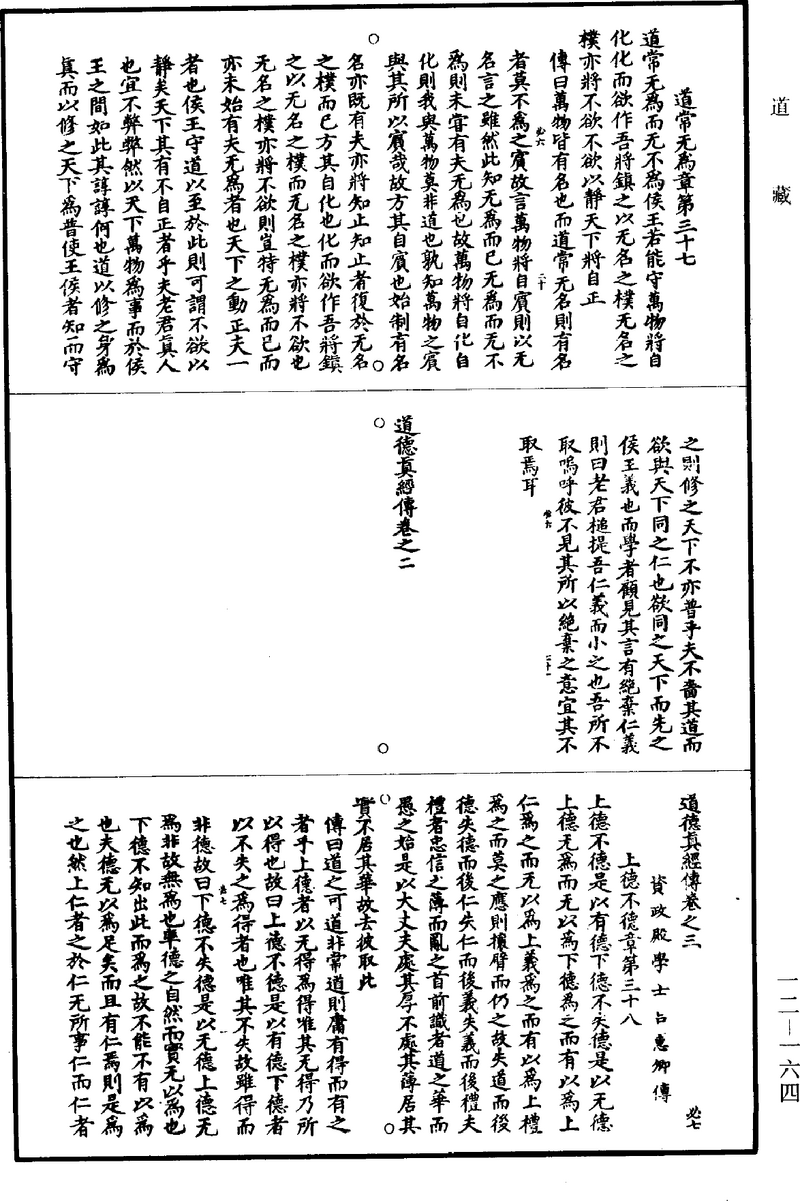 道藏
道常无為章第三十七
道常无為而无不為侯王若能守萬物將自
化化而欲作吾將鎮之以无名之樸无名之
樸亦將不欲不欲以靜天下將自正
傳曰萬物皆有名也而道常无名則有名
者莫不為之賓故言萬物將自賓則以无
必六
二十
名言之雖然此知无為而已无為而无不
為則未甞有夫无為也故萬物將自化自
化則我與萬物莫非道也孰知萬物之賓
與其所以賓哉故方其自賓也始制有名
名亦既有夫亦將知止知止者復於无名
之樸而已方其自化也化而欲作吾將鎮
之以无名之樸而无名之樸亦將不欲也
无名之樸亦將不欲則豈特无為而已而
亦未始有夫无為者也天下之動正夫一
者也侯王守道以至於此則可謂不欲以
靜矣天下其有不自正者乎夫老君真人
也宜不弊弊然以天下萬物為事而於侯
王之間如此其諄諄何也道以修之身為
真而以修之天下為普使王侯者知而守
之則修之天下不亦普乎夫不嗇其道而
欲與天下同之仁也欲同之天下而先之
侯王義也而學者顧見其言有絶棄仁義
則曰老君槌提吾仁義而小之也吾所不
取嗚呼彼不見其所以絶棄之意宜其不
必六
二十一
取焉耳
道德真經傳卷之二
道德真經傳卷之三
必七
資政殿學士吕惠卿傳
上德不德章第三十八
上德不德是以有德下德不失德是以无德
上德无為而无以為下德為之而有以為上
仁為之而无以為上義為之而有以為上禮
為之而莫之應則攘臂而仍之故失道而後
德失德而後仁失仁而後義失義而後禮夫
禮者忠信之薄而亂之首前識者道之華而
愚之始是以大丈夫處其厚不處其薄居其
實不居其華故去彼取此
傳曰道之可道非常道則庸有得而有之
者乎上德者以无得為得唯其无得乃所
以得也故曰上德不德是以有德下德者
以不失之為得者也唯其不失故雖得而
必七
一
非德故曰下德不失德是以无德上德无
為非故無為也率德之自然而實无以為也
下德不知出此而為之故不能不有以為
也夫德无以為足矣而且有仁焉則是為
之也然上仁者之於仁无所事仁而仁者
一二—一六四